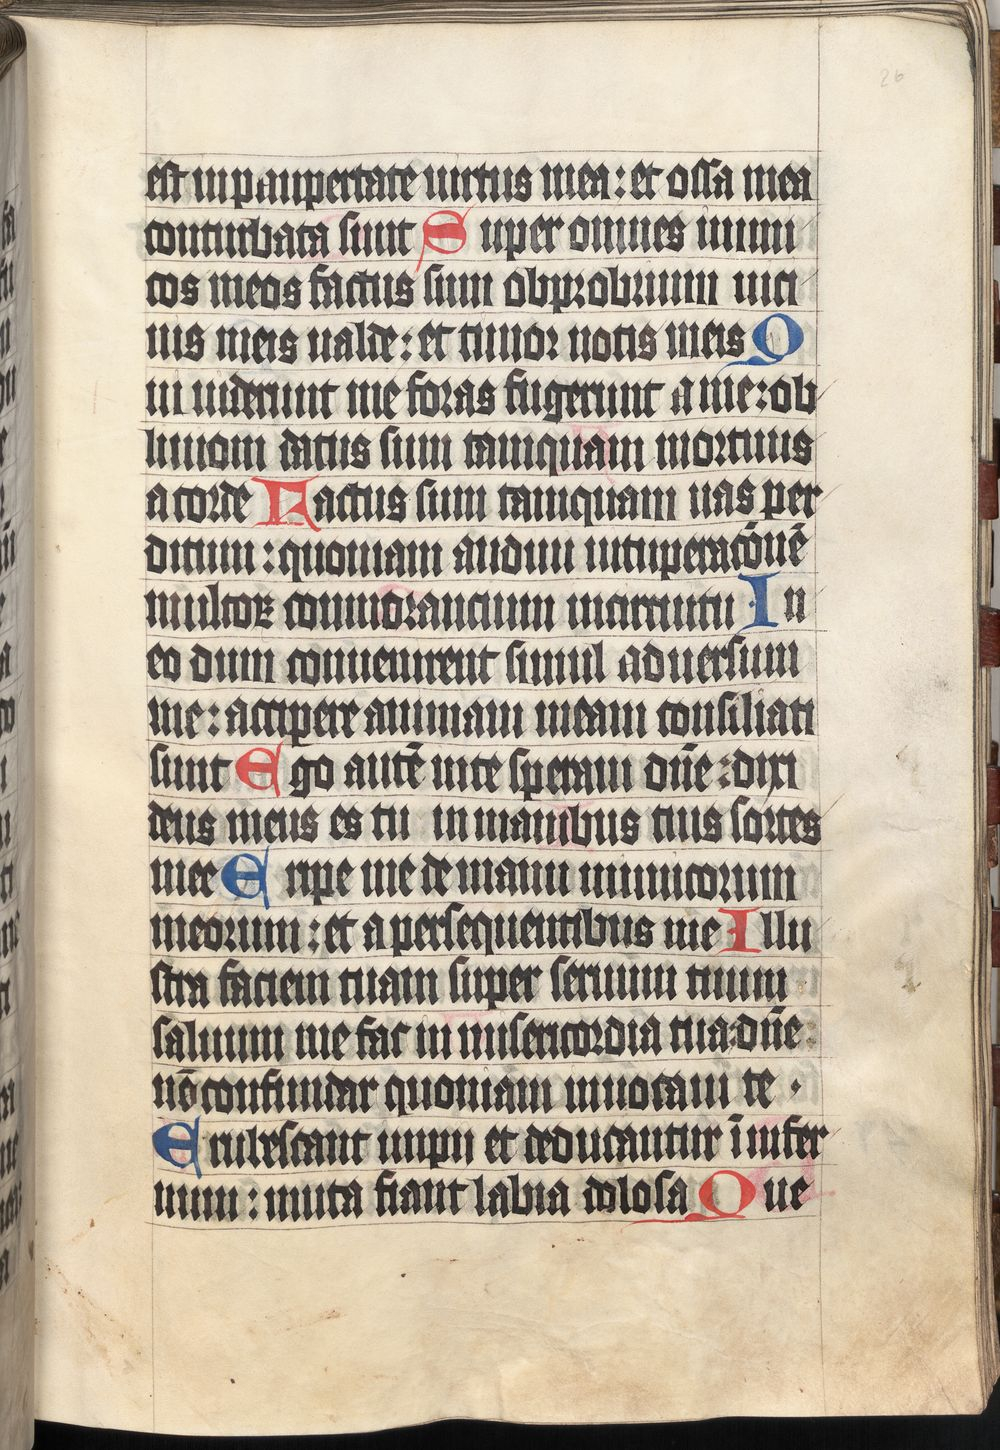 26
est in paupertate uirtus mea: et ossa mea
conturbata sunt Super omnes inimi
cos meos factus sum obprobrium uici
nis meis ualde: et timor notis meis Q
ui uiderunt me foras fugerunt a me: ob
liuioni datus sum tamquam mortuus
a corde Factus sum tamquam uas per
ditum: quoniam audiui uituperacōnē
multoꝝ commorancium in circuitu In
eo dum conuenirent simul aduersum
me: accipere animam meam consiliati
sunt Ego autē in te speraui dn̄e: dixi
deus meus es tu in manibus tuis sortes
mee Eripe me de manu inimicorum
meorum: et a persequentibus me Illu
stra faciem tuam super seruum tuum
saluum me fac in misericordia tua: dn̄e
nō confundar quoniam inuocaui te ·
Erubescant impii et deducantur ī infer
num: muta fiant labia dolosa Que